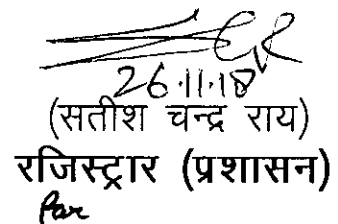 26.11.18
(सतीश चन्द्र राय)
रजिस्ट्रार (प्रशासन)